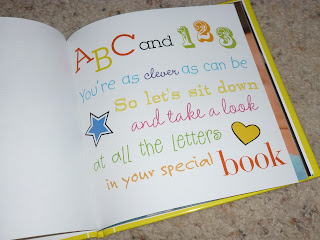 ABC and 123
You're as clever as can be
So let's sit down
and take a look
at all the letters
in your special book